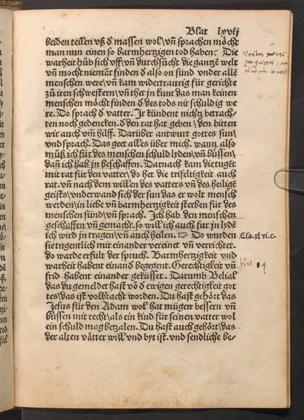 Blat lxvij
beiden teilen vß d massen wol/ vñ sprachen möcht
man nun einen so barmhertzigen tod haben. Die
warheit hůb sich vff/ vñ durchsůcht die gantz welt
vñ mocht niemāt finden d also on sünd vnder allē
menschen
zů iren schwestern/ vñ thet jn kunt das man keinen
menschen möcht finden d des tods nit schuldig we
re. Do sprach d vatter. Ir kündent nichtz betrach-
ten noch gedencken. d den rat hat geben/ den bitten
wir auch vm̄ hilff. Darüber antwurt gottes sun/
vnd sprach. Das geet alles über mich. wann also
můß ich für des menschen schuld leiden/ vn̄ büssen/
dan ich hab jn beschaffen. Darnach kam die tugēt
mit rat für den vatter/ do het die trifeltigkeit auch
rat. vn̄ nach dem willen des vatters vn̄ des heiligē
geists/ vnderwand sich der sun das er wolt mensch
werden/ in liebe vn̄ barmhertzigkeit sterben für des
menschen sünd/ vn̄ sprach. Ich hab den menschen
geschaffen vn̄ gemacht. so will ich auch für jn lyde
ich wird jn tragen/ vn̄ auch heilen. Do wurden Esa. xl vi. c.
fietugentlich mit einander vereinet vn̄ verrichtet.
do warde erfült der spruch. Barmhertzigkeit vnd
warheit habent einand begegent. Gerechtigkeit vn̄
frid habent einander geküsset. Darumb Delicul
das du gemeldet hast vō d ewigen gerechtigkeit got
tes/ das ist volbracht worden. Du hast gehört das
Jesus für den Adam wol hat mügen bessern vn̄
büssen mit recht/ als ein kind für seinen vatter wol
ein schuld mag bezalen. Du hast auch gehört/ das
der alten vätter will/ vnd byt ist. vnd sendliche be-